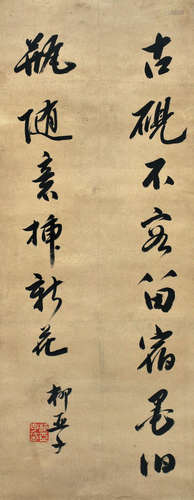 古硯不容留宿墨旧
瓶随意插新花
柳亚子